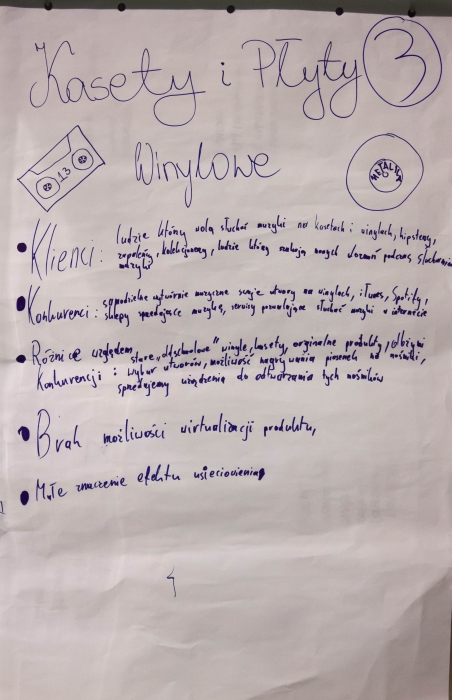 Kasety i Płyty 3
Winylowe
13
METALLICA
• Klienci: ludzie którzy wolą słuchać muzyki na kasetach i winylach, hipsterzy,
zapaleńcy, kolekcjonerzy, ludzie którzy szukają nowych doznań podczas słuchania
muzyki
• Konkurenci: samodzielne wytwórnie muzyczne swoje utwory na winylach, iTunes, Spotify,
sklepy sprzedające muzykę, serwisy pozwalające słuchać muzyki w internecie
• Różnice względem stare, "oldschoolowe" winyle, kasety, orginalne produkty, olbrzymi
Konkurencji: wybór utworów, możliwość nagrywania piosenek na nośniki,
sprzedajemy urządzenia do odtwarzania tych nośników
• Brak możliwości wirtualizacji produktu,
• Małe znaczenie efektu usieciowienia